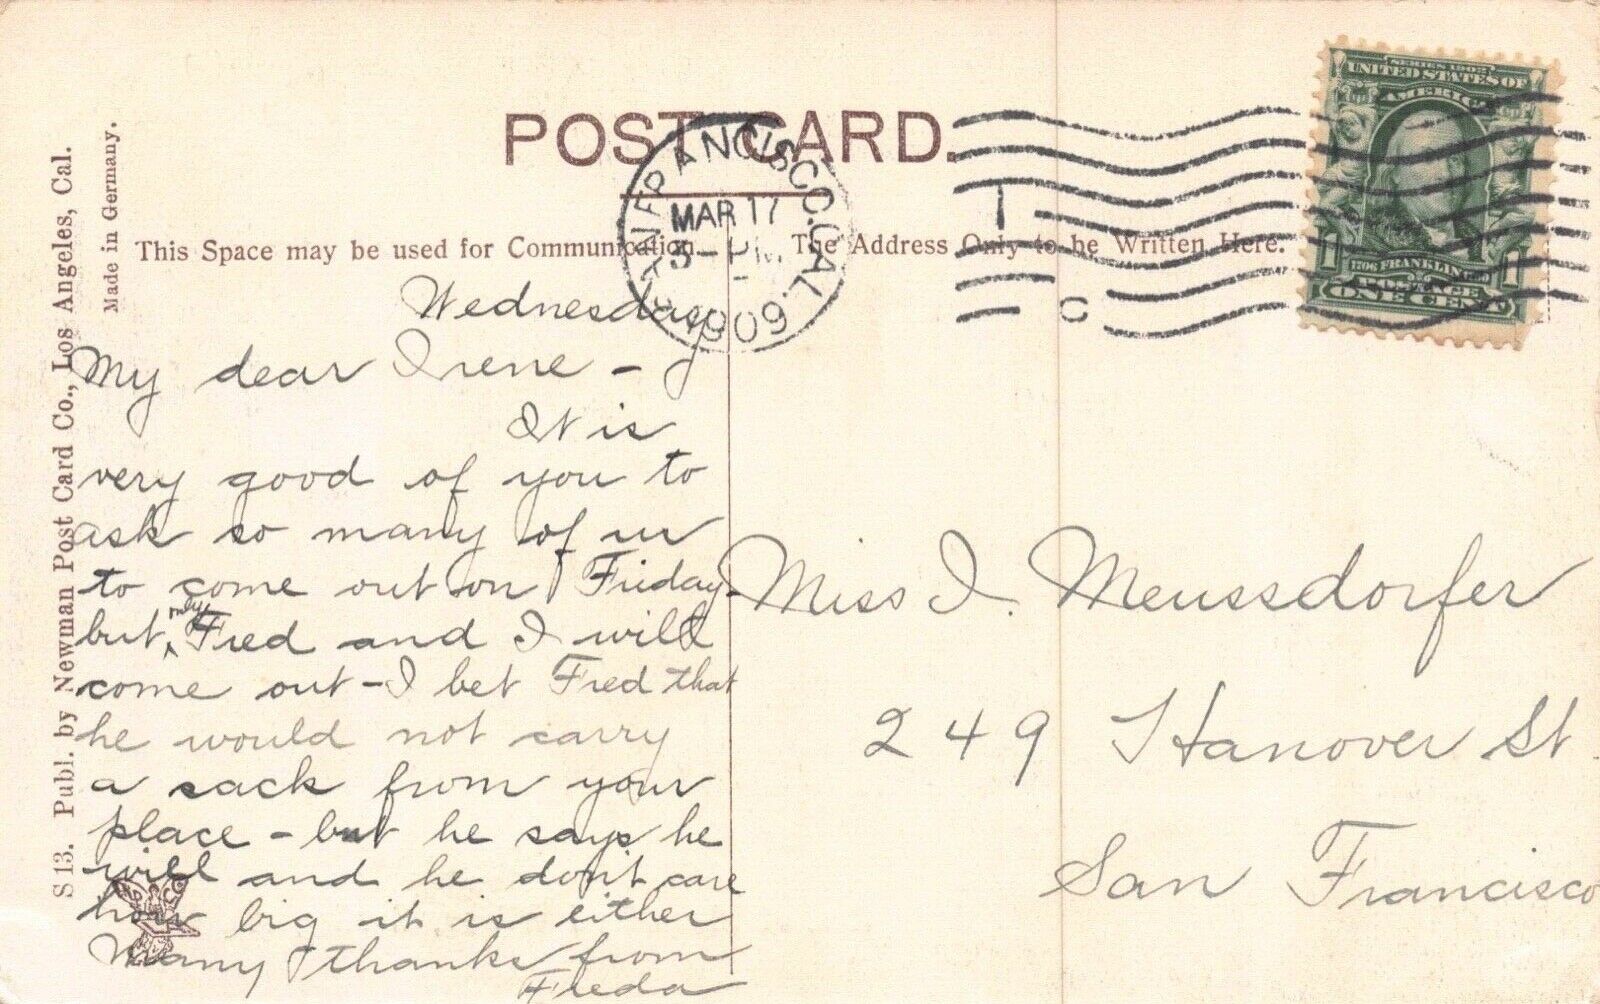 POST CARD.
This Space may be used for Communication.
The Address Only to be Written Here.
S 13. Publ. by Newman Post Card Co., Los Angeles, Cal.
Made in Germany.
SAN FRANCISCO, CAL.
MAR 17
5 - PM
1909
1
C
SERIES 1902
UNITED STATES OF
AMERICA
1706 FRANKLIN 1790
POSTAGE
1 ONE CENT 1
Wednesday
My dear Irene -
It is
very good of you to
ask so many of us
to come out on Friday-
but only Fred and I will
come out - I bet Fred that
he would not carry
a sack from your
place - but he says he
will and he don't care
how big it is either
Many thanks from
Freda
Miss I. Meussdorfer
249 Hanover St.
San Francisco